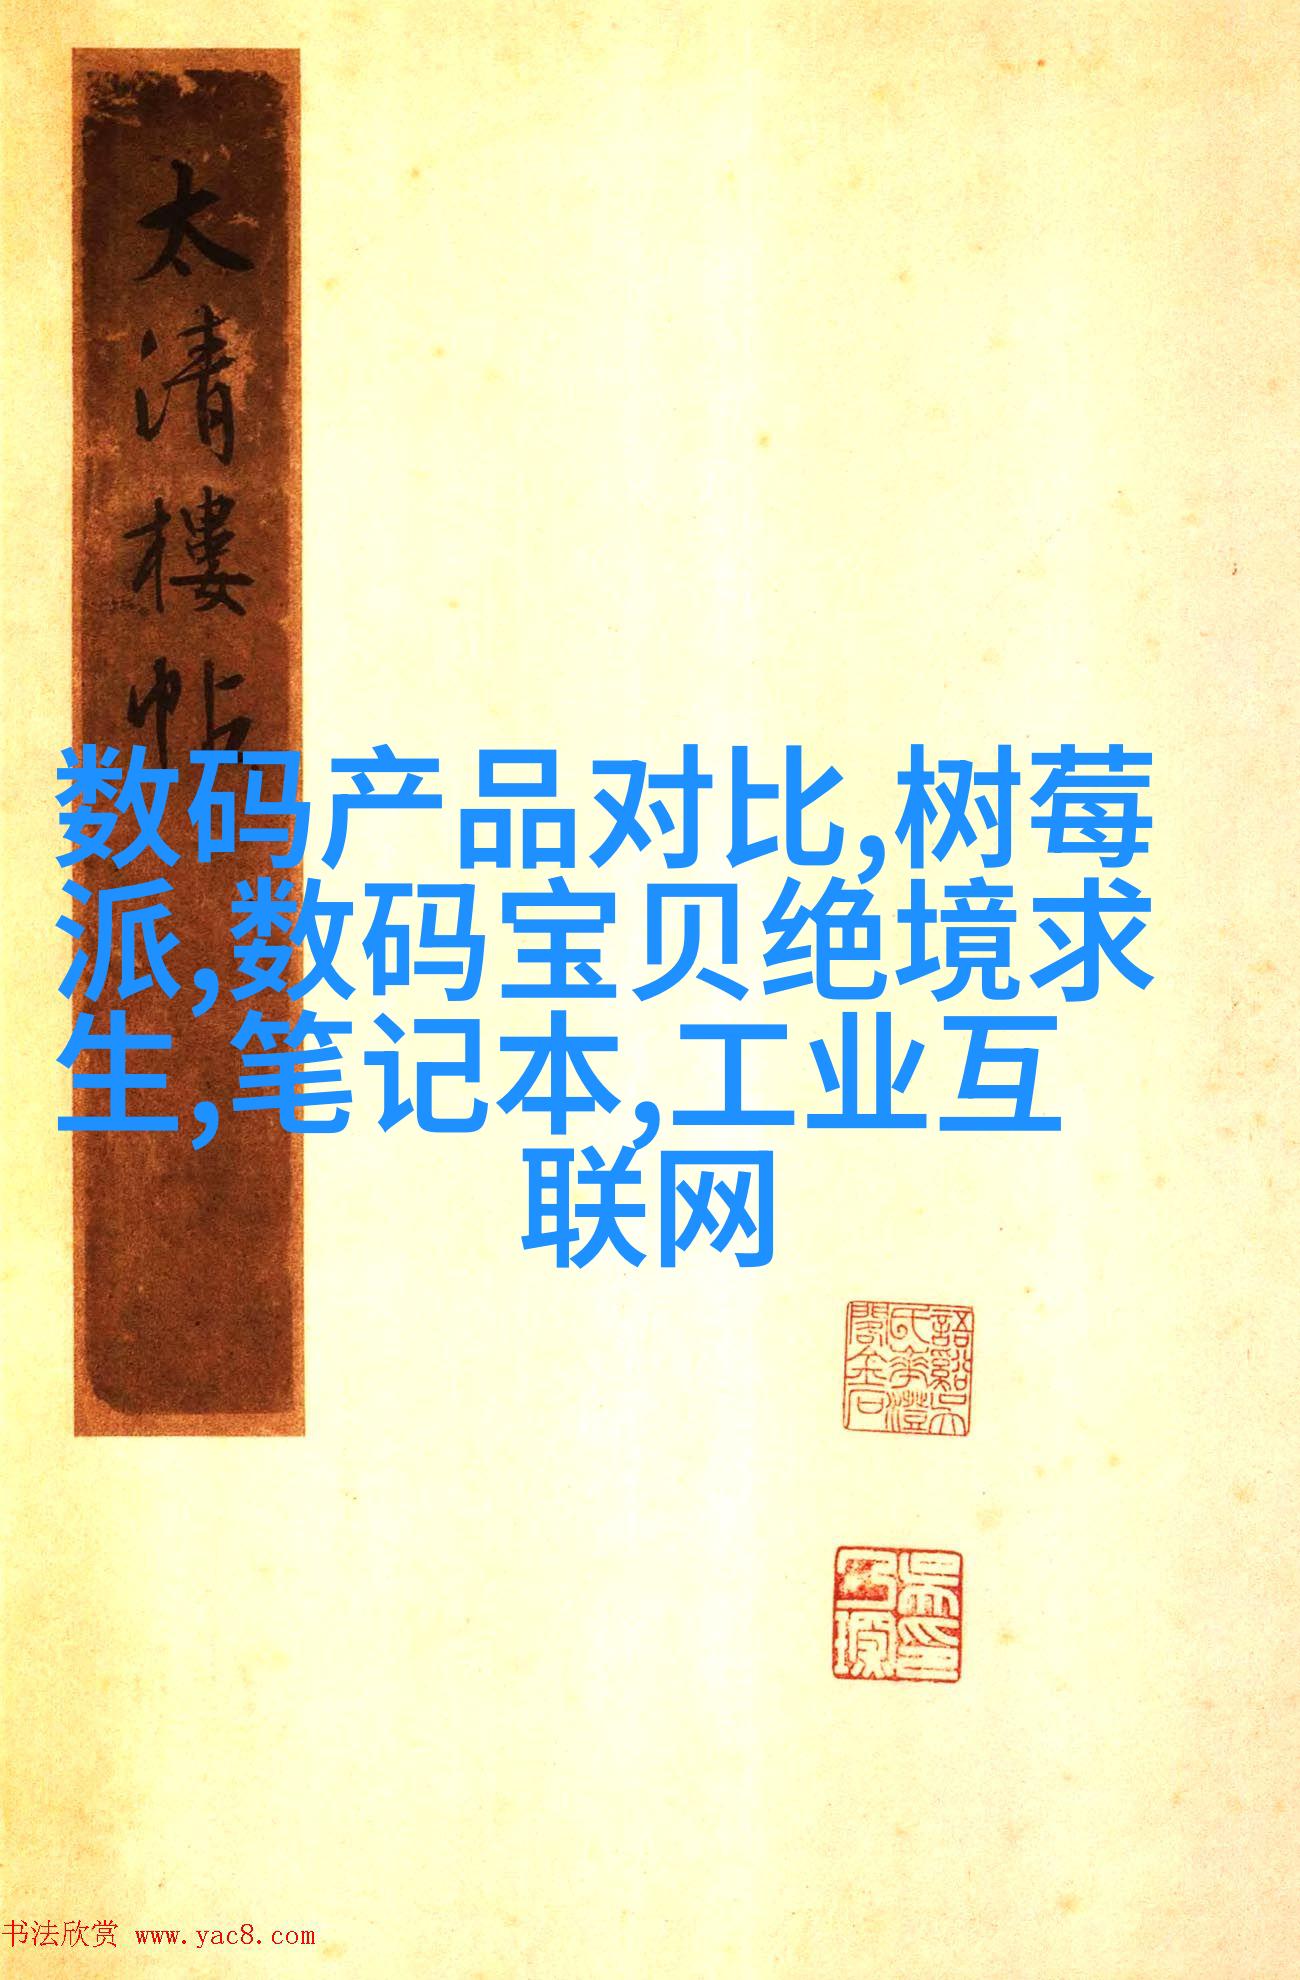 太清樓帖
数码产品对比,树莓
派,数码宝贝绝境求
生,笔记本,工业互
联网
书法欣赏 www.yac8.com